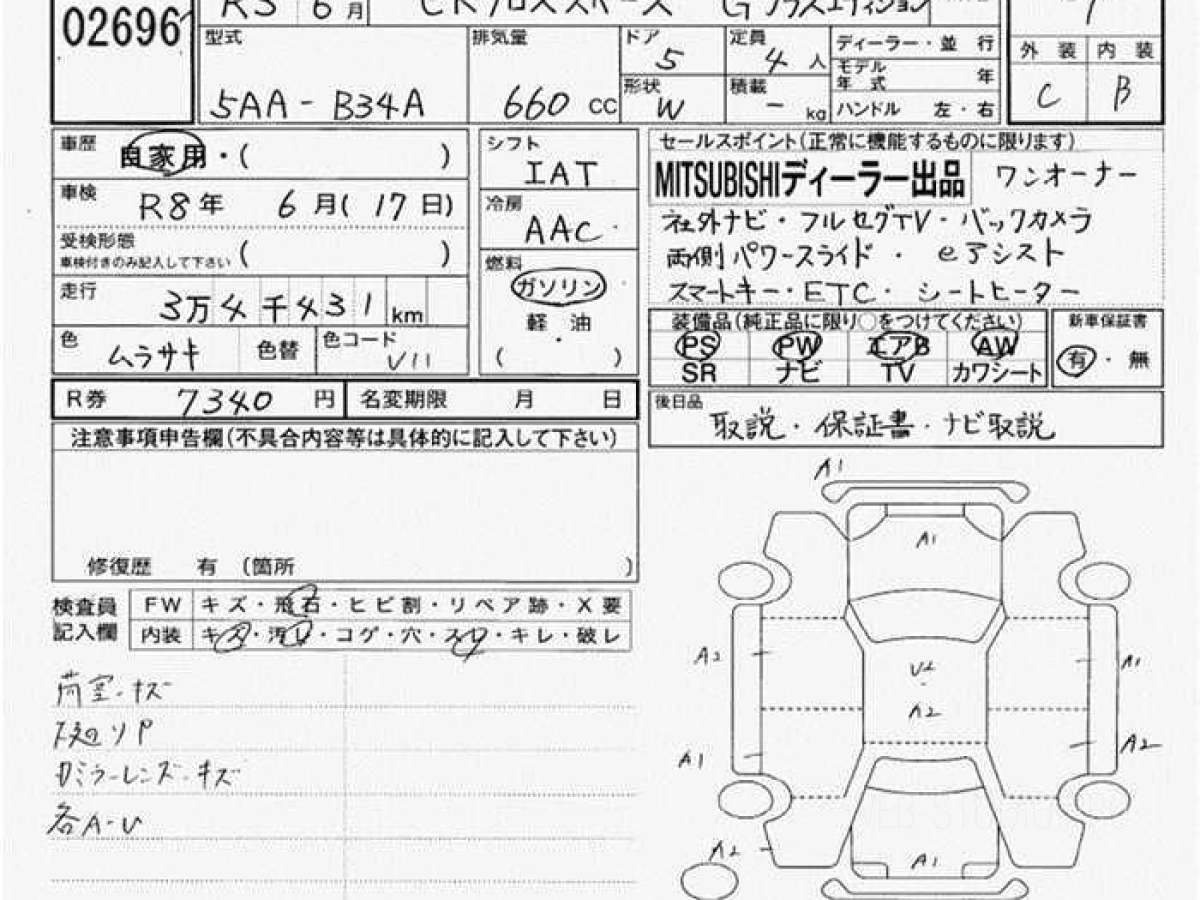 02696
R5 6月 eKクロススペース Gプラスエディション
型式 5AA-B34A
排気量 660 cc
ドア 5
形状 W
定員 4 人
積載 - kg
ディーラー・並 行
モデル年式 年
ハンドル 左・右
外 装 C
内 装 B
車歴 自家用・( )
車検 R8年 6月(17日)
受検形態 ( )
車検付きのみ記入して下さい
走行 3万4千431km
色 ムラサキ
色替
色コード V11
シフト IAT
冷房 AAC
燃料 ガソリン
・
軽 油
( )
セールスポイント(正常に機能するものに限ります)
MITSUBISHIディーラー出品 ワンオーナー
社外ナビ・フルセグTV・バックカメラ
両側パワースライド・eアシスト
スマートキー・ETC・シートヒーター
装備品(純正品に限り○をつけてください)
PS PW エアB AW
SR ナビ TV カワシート
新車保証書
有・無
R券 7340 円
名変期限 月 日
後日品
取説・保証書・ナビ取説
注意事項申告欄(不具合内容等は具体的に記入して下さい)
修復歴 有 (箇所 )
検査員記入欄
FW キズ・飛石・ヒビ割・リペア跡・X要
内装 キズ・汚レ・コゲ・穴・スレ・キレ・破レ
荷室・キズ
下廻りサP
カミラーレンズ・キズ
各A-U
A1
A1
A2
U2
A2
A1
A1
A2
A2
A1